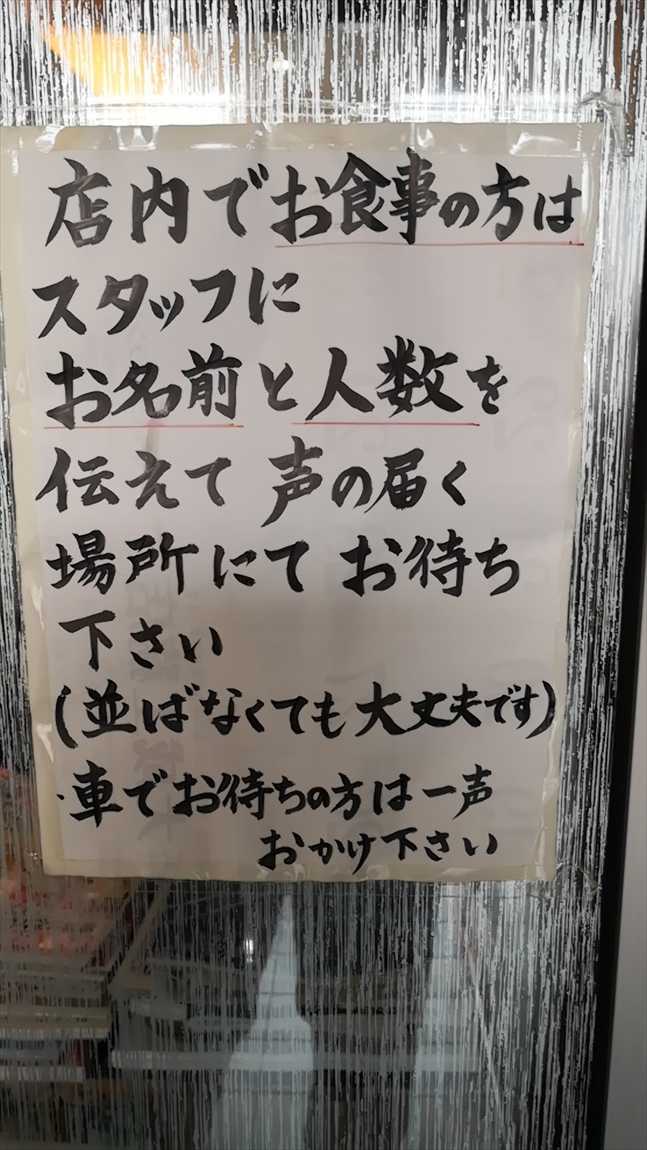 店内でお食事の方は
スタッフに
お名前と人数を
伝えて 声の届く
場所にて お待ち
下さい
(並ばなくても大丈夫です)
・車でお待ちの方は一声
おかけ下さい